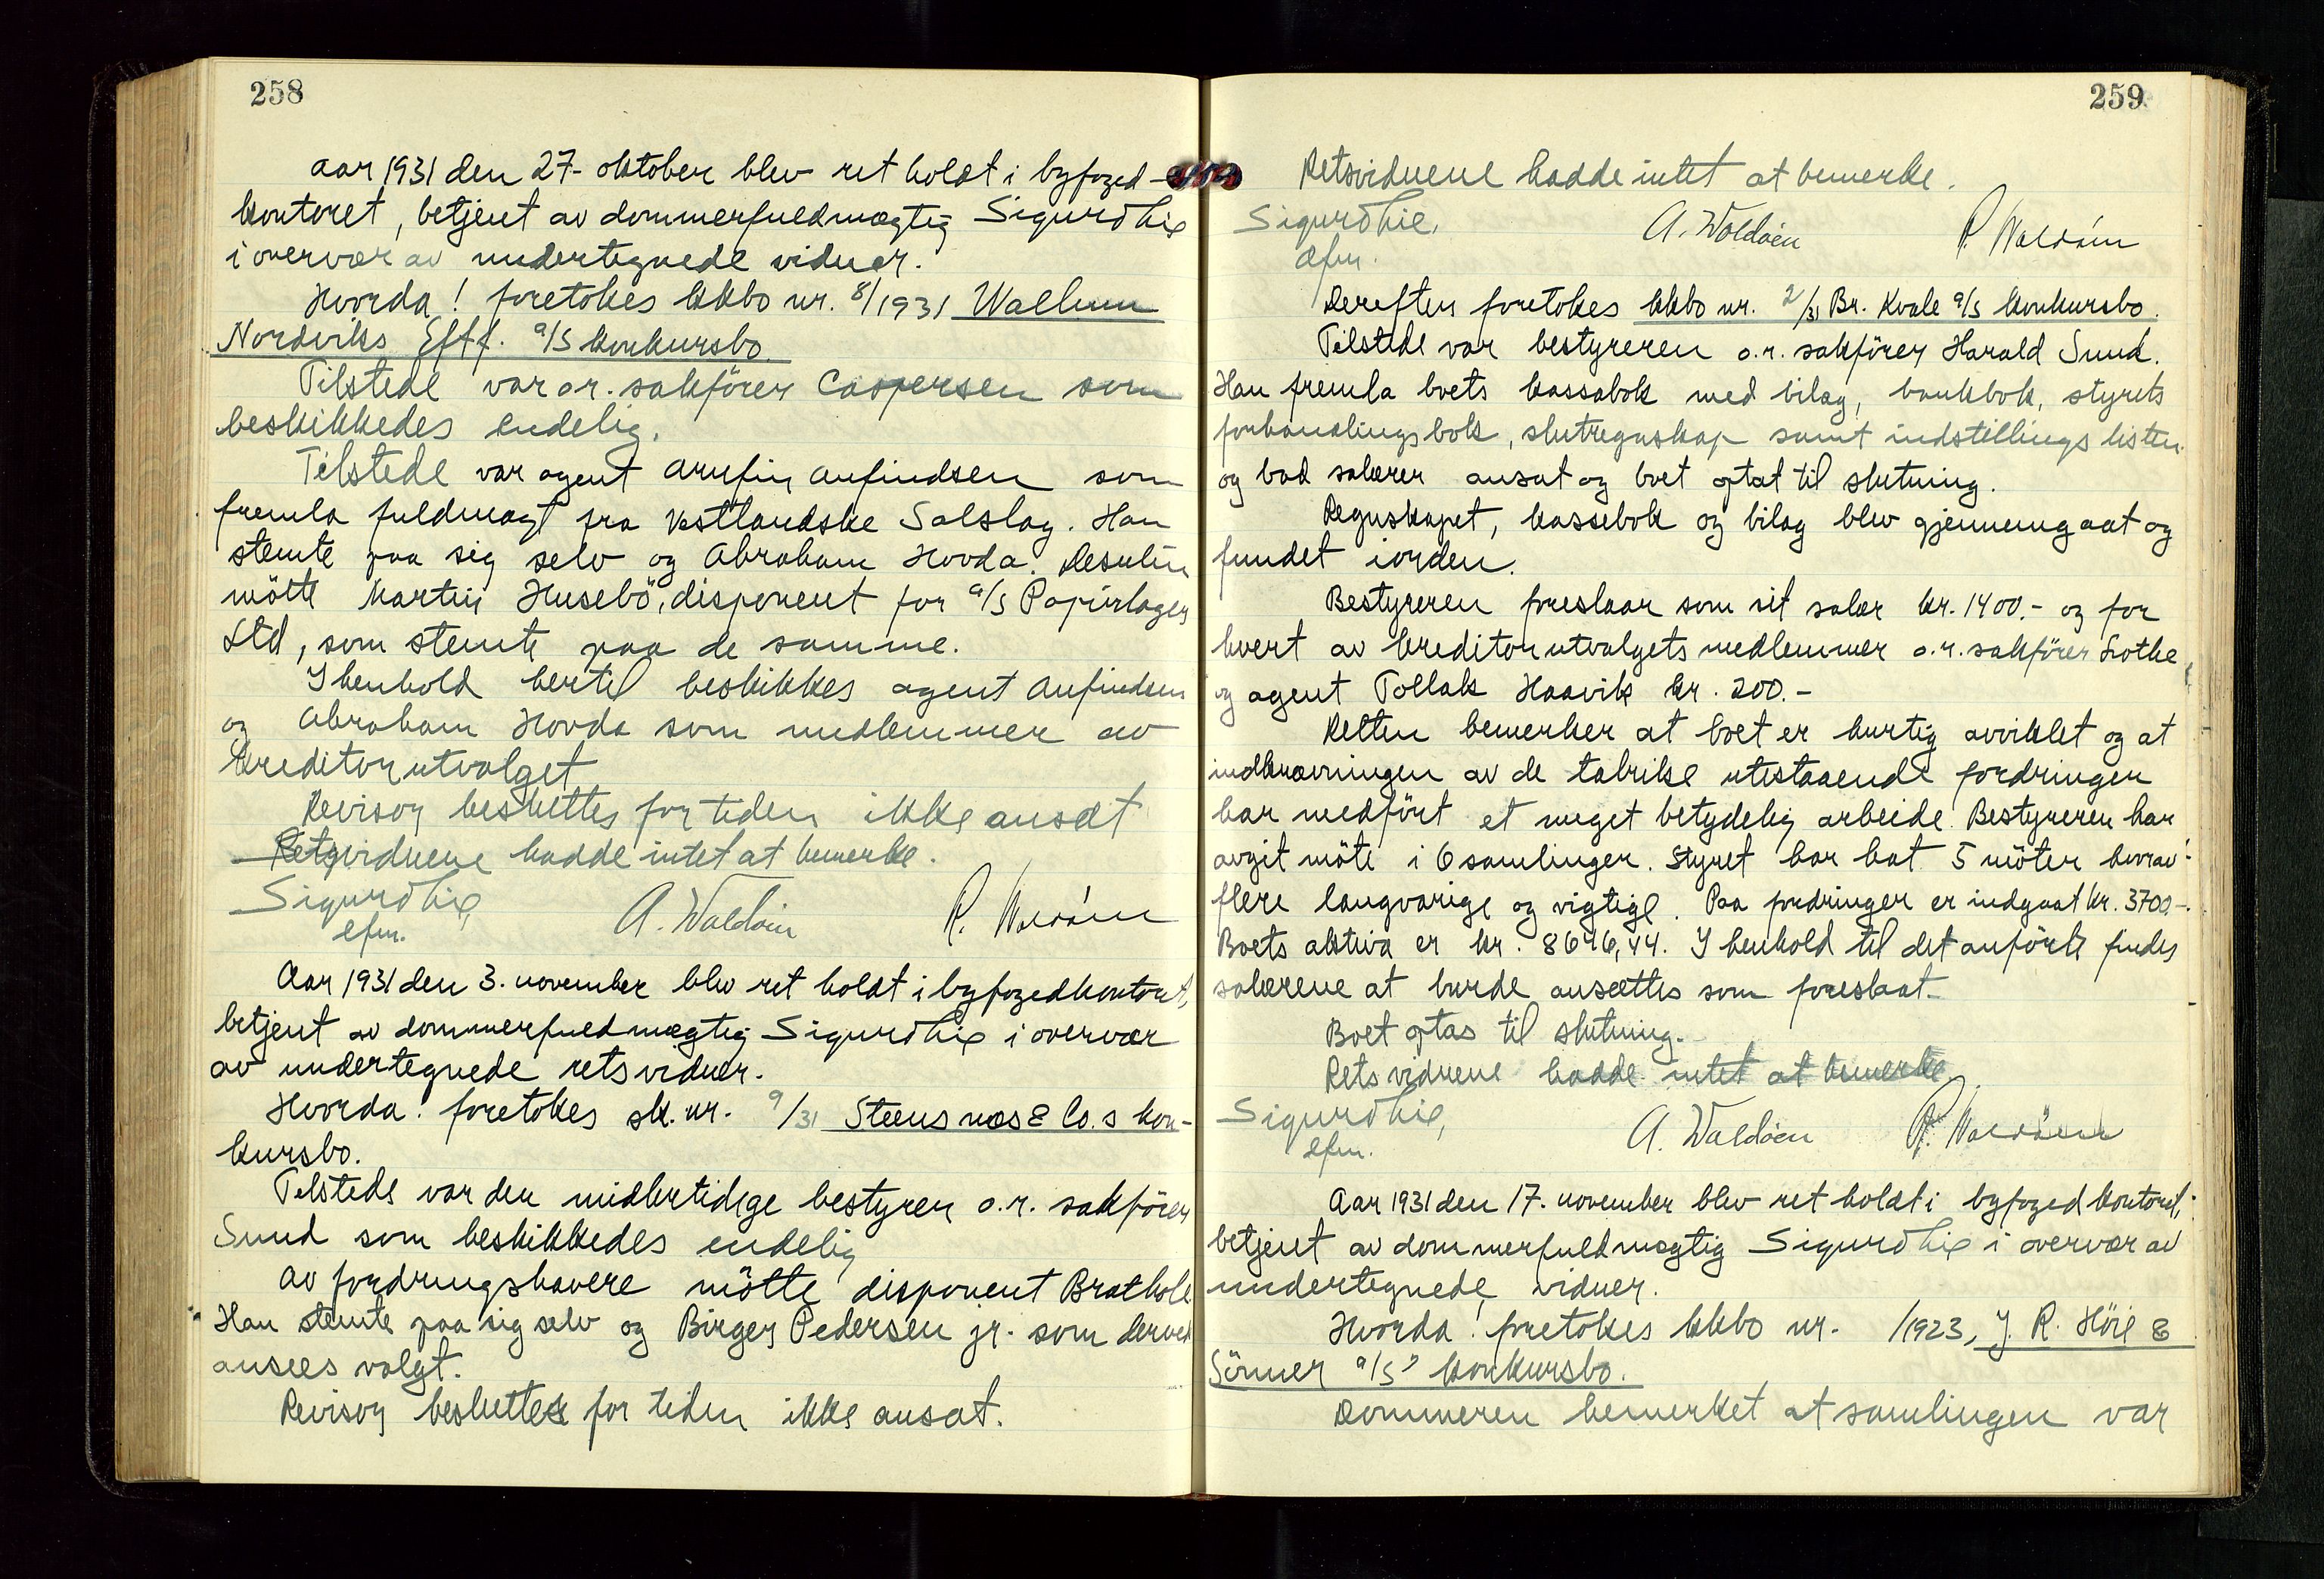 258
Aar 1931 den 27. oktober blev ret holdt i byfoged-
kontoret, betjent av dommerfuldmægtig Sigurd Lie
i overvær av undertegnede vidner.
Hvorda! foretokes kkbo nr. 8/1931 Wallum
Nordviks Eftf. a/s konkursbo.
Tilstede var o.r. sakfører Caspersen som
beskikkedes endelig.
Tilstede var agent Arnfin Anfindsen som
fremla fuldmagt fra Vestlandske Salslag. Han
stemte paa sig selv og Abraham Hovda. Desuten
mötte Martin Husebö, disponent for a/s Papirlager
Ltd, som stemte paa de samme.
I henhold hertil beskikkes agent Anfindsen
og Abraham Hovda som medlemmer av
kreditorutvalget
Revisor besluttes for tiden ikke ansat
Retsvidnene hadde intet at bemerke.
Sigurd Lie
efm.
A. Waldöen
R. Waldöen
Aar 1931 den 3. november blev ret holdt i byfogedkontoret,
betjent av dommerfuldmægtig Sigurd Lie i overvær
av undertegnede retsvidner.
Hvorda! foretokes sk. nr. 9/31 Steensnæs & Co.s kon-
kursbo.
Tilstede var den midlertidige bestyrer o.r. sakförer
Sund som beskikkedes endelig
Av fordringshavere mötte disponent Brathole
Han stemte paa sig selv og Birger Pedersen jr. som derved
ansees valgt.
Revisor besluttes for tiden ikke ansat.
259
Retsvidnene hadde intet at bemerke.
Sigurd Lie.
efm.
A. Waldöen
R. Waldöen
Derefter foretokes kkbo nr. 2/31 Br. Kvale a/s konkursbo.
Tilstede var bestyreren o.r. sakförer Harald Sund.
Han fremla boets kassabok med bilag, bankbok, styrets
forhandlingsbok, slutregnskap samt indstillingslisten
og bad salærer ansat og boet optat til slutning.
Regnskapet, kassebok og bilag blev gjennemgaat og
fundet iorden.
Bestyreren foreslaar som sit salær kr. 1400.- og for
hvert av kreditorutvalgets medlemmer o.r. sakförer Lothe
og agent Tollak Haavik kr. 200.-
Retten bemerker at boet er hurtig avviklet og at
indkrævningen av de talrike utestaaende fordringer
har medfört et meget betydelig arbeide. Bestyreren har
avgit möte i 6 samlinger. Styret har hat 5 möter hvorav
flere langvarige og vigtige. Paa fordringer er indgaat kr. 3700.-
Boets aktiva er kr. 8646,44. I henhold til det anförte findes
salærene at burde ansættes som foreslaat.
Boet optas til slutning.
Retsvidnene hadde intet at bemerke.
Sigurd Lie,
efm.
A. Waldöen
R. Waldöen
Aar 1931 den 17. november blev ret holdt i byfogedkontoret,
betjent av dommerfuldmægtig Sigurd Lie i overvær av
undertegnede vidner.
Hvorda! foretokes kkbo nr. /1923, J. R. Höie &
Sönner a/s' konkursbo.
Dommeren bemerket at samlingen var